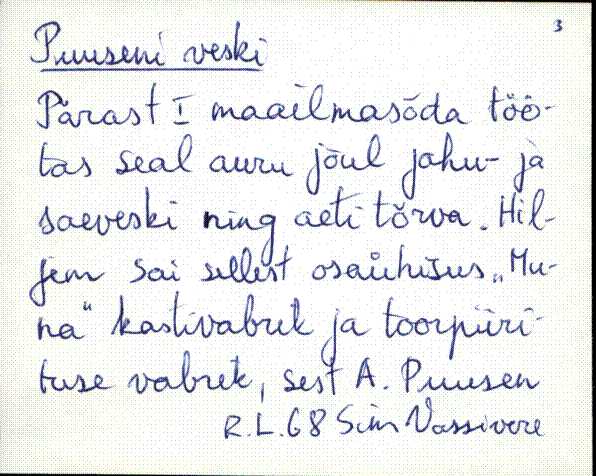 3
Puuseni veski
Pärast I maailmasõda töö-
tas seal auru jõul jahu- ja
saeveski ning aeti tõrva. Hil-
jem sai sellest osaühisus „Mu-
na" kastivabrik ja toorpiiri-
tuse vabrik, sest A. Puusen
R.L. 68 Siim Vassivere